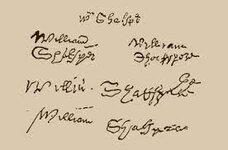 Wm Shakspe
William William
Shaksper Shakspere
Willm Shakspere
William Shakspere